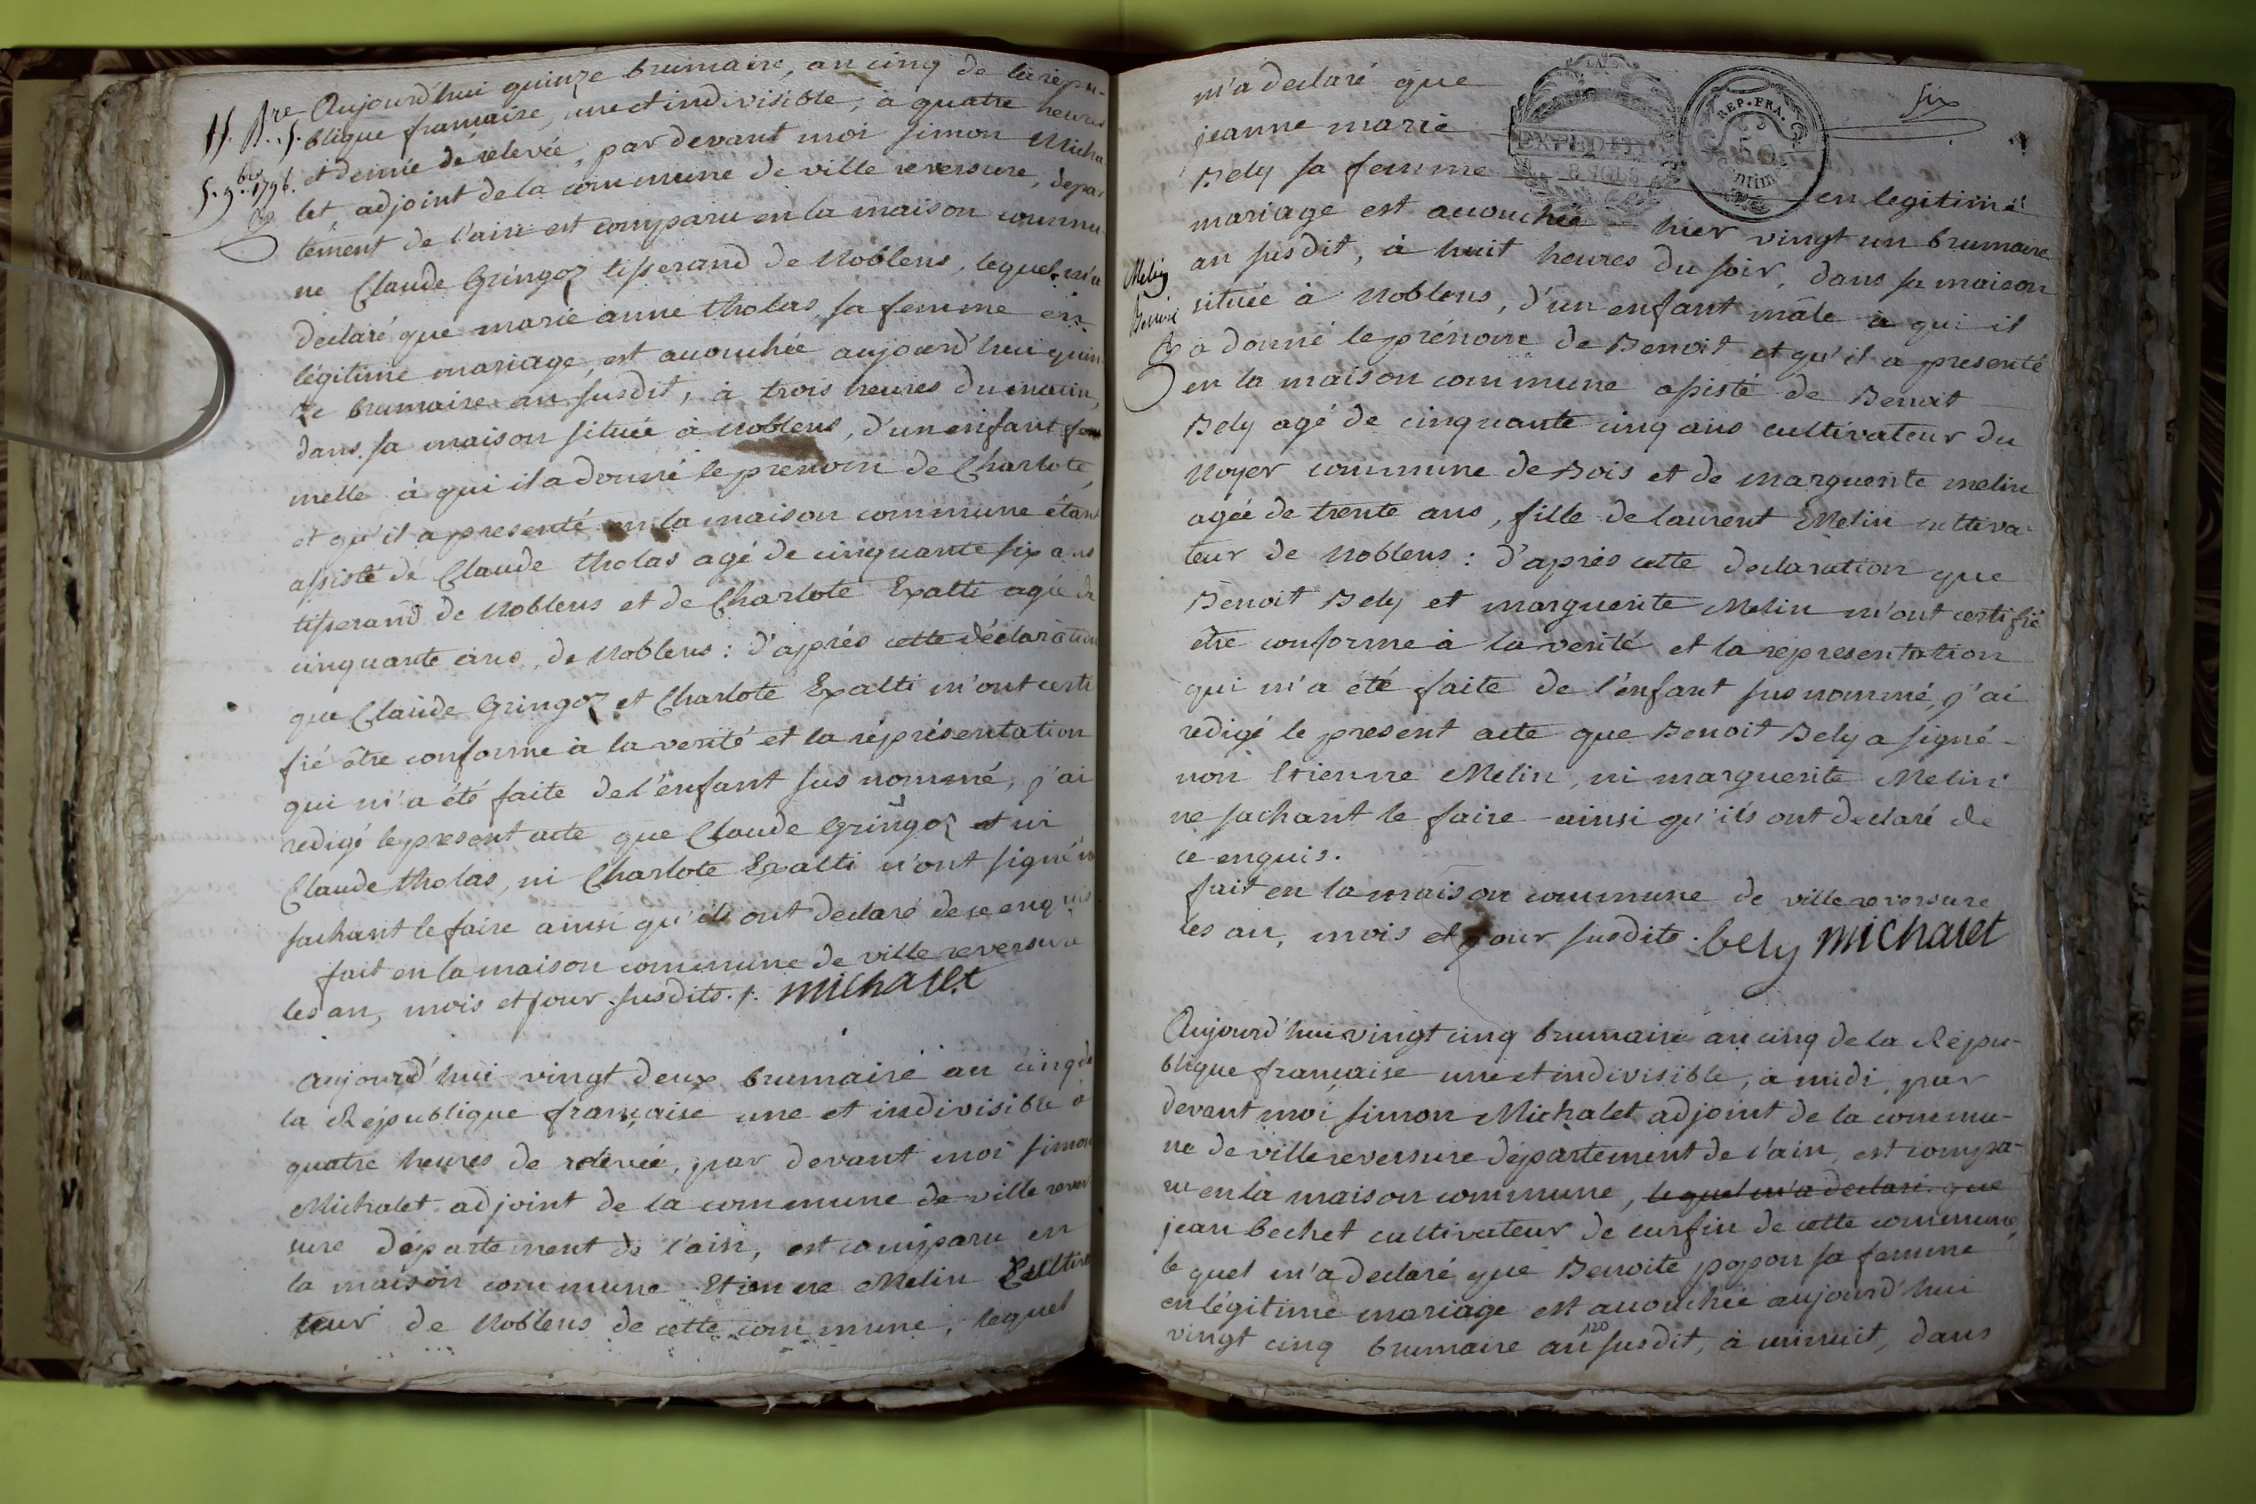 15. Bre. 5.
5. 9bre 1796.
Aujourd'hui quinze brumaire, an cinq de la répu-
blique française, une et indivisible, à quatre heures
et demie de relevée, par devant moi Simon Micha
let, adjoint de la commune de ville reversure, depar
tement de l'ain est comparu en la maison commu
ne Claude Gringoz tisserand de Noblens, lequel m'a
declaré que marie anne tholas, sa femme en
légitime mariage, est acouchée aujourd'hui quin
ze brumaire an susdit, à trois heures du matin,
dans sa maison située à Noblens, d'un enfant fem
melle à qui il a donné le prenom de Charlote,
et qu'il a presenté en la maison commune étant
assisté de Claude tholas agé de cinquante six ans
tisserand de Noblens et de Charlote Exalti agée de
cinquante ans, de Noblens: d'après cette déclaration
que Claude Gringoz et Charlote Exalti m'ont certi
fié être conforme à la verité et la réprésentation
qui m'a été faite de l'enfant sus nommé, j'ai
redigé le present acte que Claude Gringoz et ni
Claude tholas, ni Charlote Exalti n'ont signé ne
sachant le faire ainsi qu'ils ont declaré de ce enquis
fait en la maison commune de ville reversure
les an, mois et jour susdits. michalet
Aujourd'hui vingt deux brumaire an cinq de
la République française une et indivisible à
quatre heures de relevée, par devant moi Simon
Michalet adjoint de la commune de ville rever
sure département de l'ain, est comparu en
la maison commune Etienne Melin Cultiva
teur de Noblens de cette commune, lequel
six
EXPEDITION
REP. FRA.
m'a declaré que
jeanne marie
Bely sa femme en legitime
mariage est acouchée hier vingt un brumaire
an susdit, à huit heures du soir, dans sa maison
Melin
Benoit
située à Noblens, d'un enfant mâle à qui il
a donné le prénom de Benoit et qu'il a presenté
en la maison commune assisté de Benoit
Bely agé de cinquante cinq ans cultivateur du
Noyer commune de Bois et de marguerite melin
agée de trente ans, fille de laurent Melin cultiva-
teur de Noblens: d'après cette declaration que
Benoit Bely et marguerite Melin m'ont certifié
etre conforme à la verité et la representation
qui m'a été faite de l'enfant sus nommé, j'ai
redigé le present acte que Benoit Bely a signé -
non Etienne Melin, ni marguerite Melin
ne sachant le faire ainsi qu'ils ont declaré de
ce enquis.
fait en la maison commune de ville reversure
les an, mois et jour susdits. bely michalet
Aujourd'hui vingt cinq brumaire an cinq de la Répu-
blique française une et indivisible, a midi, par
devant moi Simon Michalet adjoint de la commu-
ne de ville reversure département de l'ain, est compa-
ru en la maison commune, lequel m'a declaré que
jean bechet cultivateur de curfin de cette commune,
lequel m'a declaré que Benoite popon sa femme
en légitime mariage est acouchée aujourd'hui
vingt cinq brumaire an susdit, à minuit, dans
120